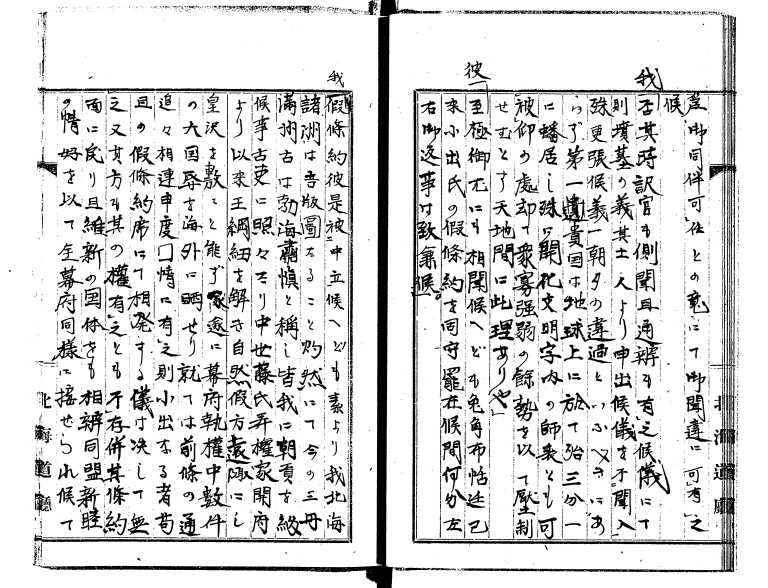 爲御同伴可仕との義にて御聞違に可有之
候
我 否其時訳官も側聞且通辨も有之候儀にて
則墳墓の義其土人より申出候儀を不聞入
殊更張候義一朝夕の違過といふべきにあ
らず第一貴国は地球上に於て殆三分一
に蟠居し殊に開化文明宇内の師表とも可
被仰の処却て衆寡強弱の餘勢を以て壓制
せむとす天地間に此理ありや
彼 至極御尤にも相聞候へども兎角布恬廷已
来小出氏の假條約を同守罷在候間何分左
右御返事は致兼候。
我 假條約彼是被申立候へども素より我北海
諸洲は吾版圖なること灼然にて今の三丹
満州古は勃海肅慎と稱し皆我に朝貢を級
候事古吏に照々たり中世藤氏弄權家開府
より以来王綱紐を解き自然假方遠陬にし
皇沢を敷こと能ず家遂に幕府執權中数件
の大国辱を海外に晒せり就ては前條の通
追々相連申度口情に有之則小出なる者苟
且の假條約席にて相発する儀は决して無
之又其方も其の權有之とも不存併其條約
面に戻り且維新の国体をも相辨同盟新睦
の情好を以て全幕府同様に搖せられ候て
北海道廳
北海道廳